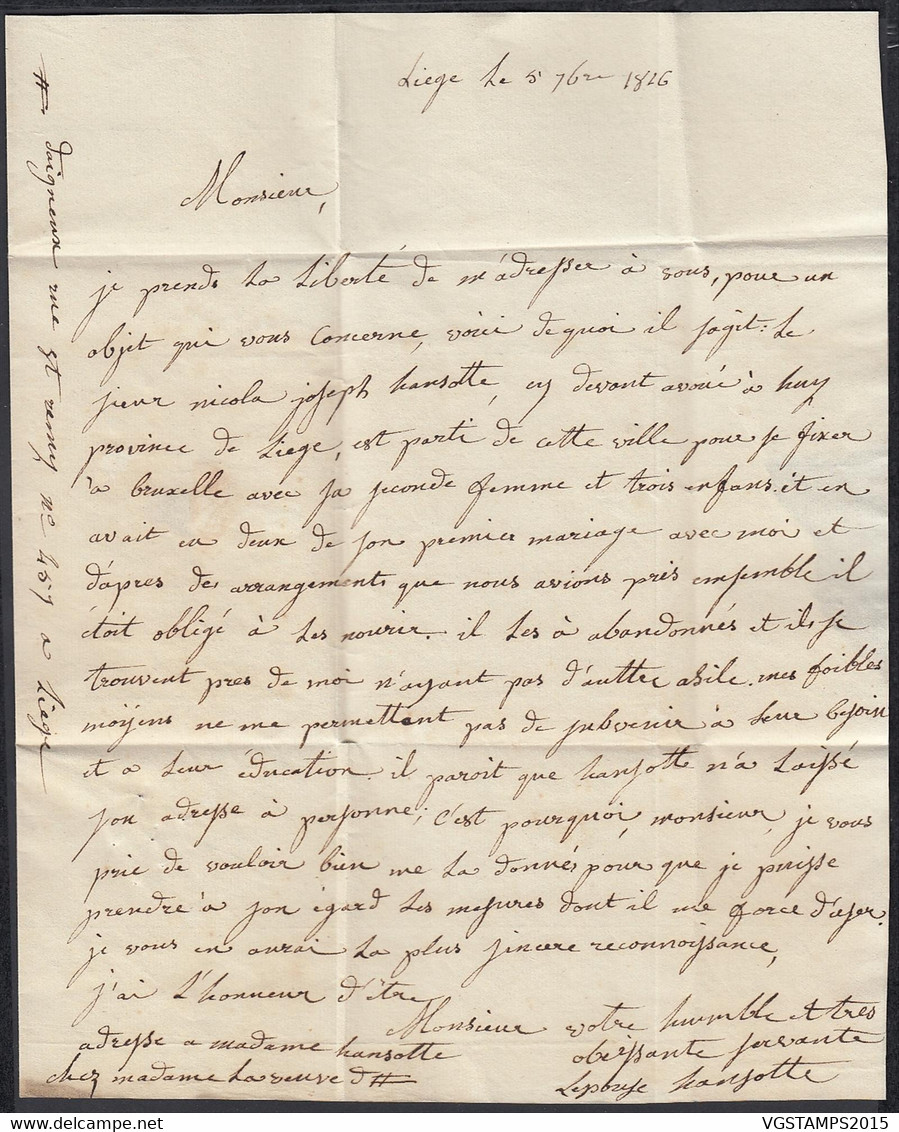 Liege Le 5 7bre 1826
Monsieur,
je prends La Liberté de m'adresser à vous, pour un
objet qui vous Concerne, voici de quoi il sagit: Le
sieur nicola joseph hansotte, cy devant avoué à huy
province de Liege, est parti de cette ville pour se fixer
à bruxelle avec sa seconde femme et trois enfans. et en
avait eu deux de son premier mariage avec moi et
d'apres des arrangements que nous avions pris ensemble il
étoit obligé à Les nourir. il Les à abandonnés et ils se
trouvent pres de moi n'ayant pas d'auttre asile. mes foibles
moÿens ne me permettent pas de subvenir à Leur besoin
et a Leur éducation. il paroit que hansott n'a Laissé
son adresse à personne; C'est pourquoi, monsieur, je vous
prie de vouloir bien me La donnés pour que je puisse
prendre à son égard Les mesures dont il me force d'user.
je vous en aurai La plus sincere reconnoissance,
j'ai L'honneur d'être
Monsieur votre humble et tres
obeissante servante
L'epouse hansotte
adresse a madame hansotte
chez madame La veuve d#
# daigneux rue st remy n° 457 a Liege
VGSTAMPS2015